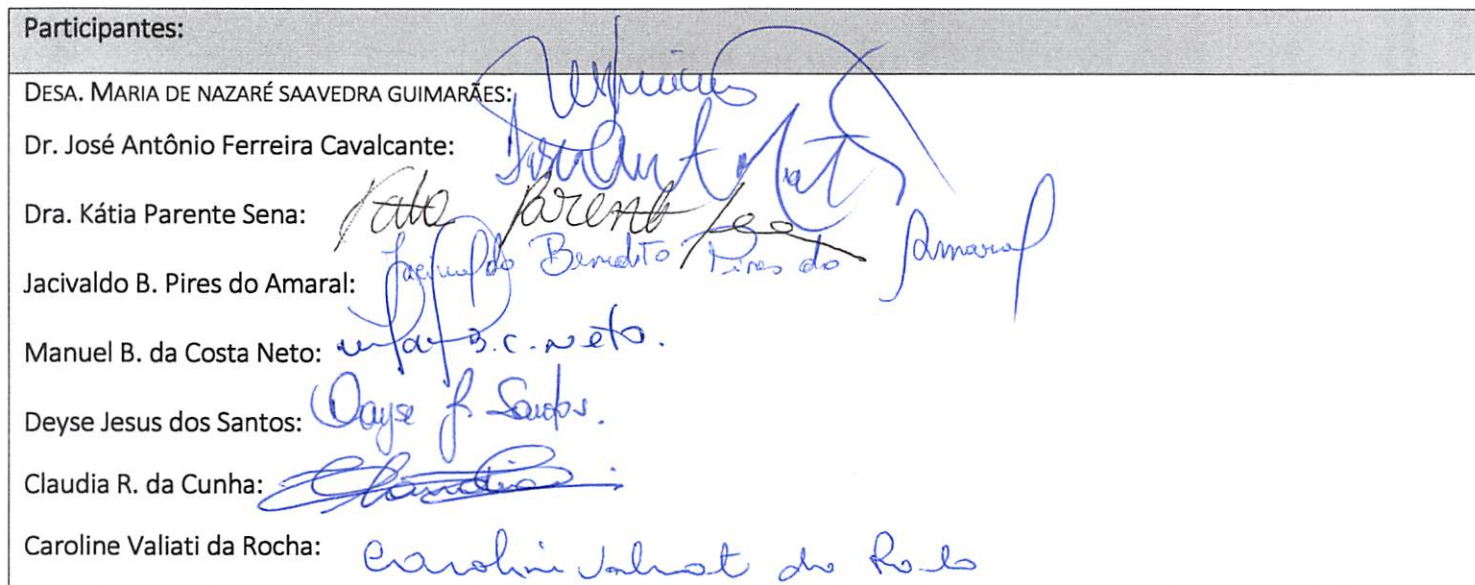 Participantes:
DESA. MARIA DE NAZARÉ SAAVEDRA GUIMARÃES:
Dr. José Antônio Ferreira Cavalcante:
Dra. Kátia Parente Sena: Parente
Jacivaldo B. Pires do Amaral: Jacivaldo Benedito Pires do Amaral
Manuel B. da Costa Neto: B. C. Neto.
Deyse Jesus dos Santos: Dayse J. Santos.
Claudia R. da Cunha: Claudia
Caroline Valiati da Rocha: Caroline